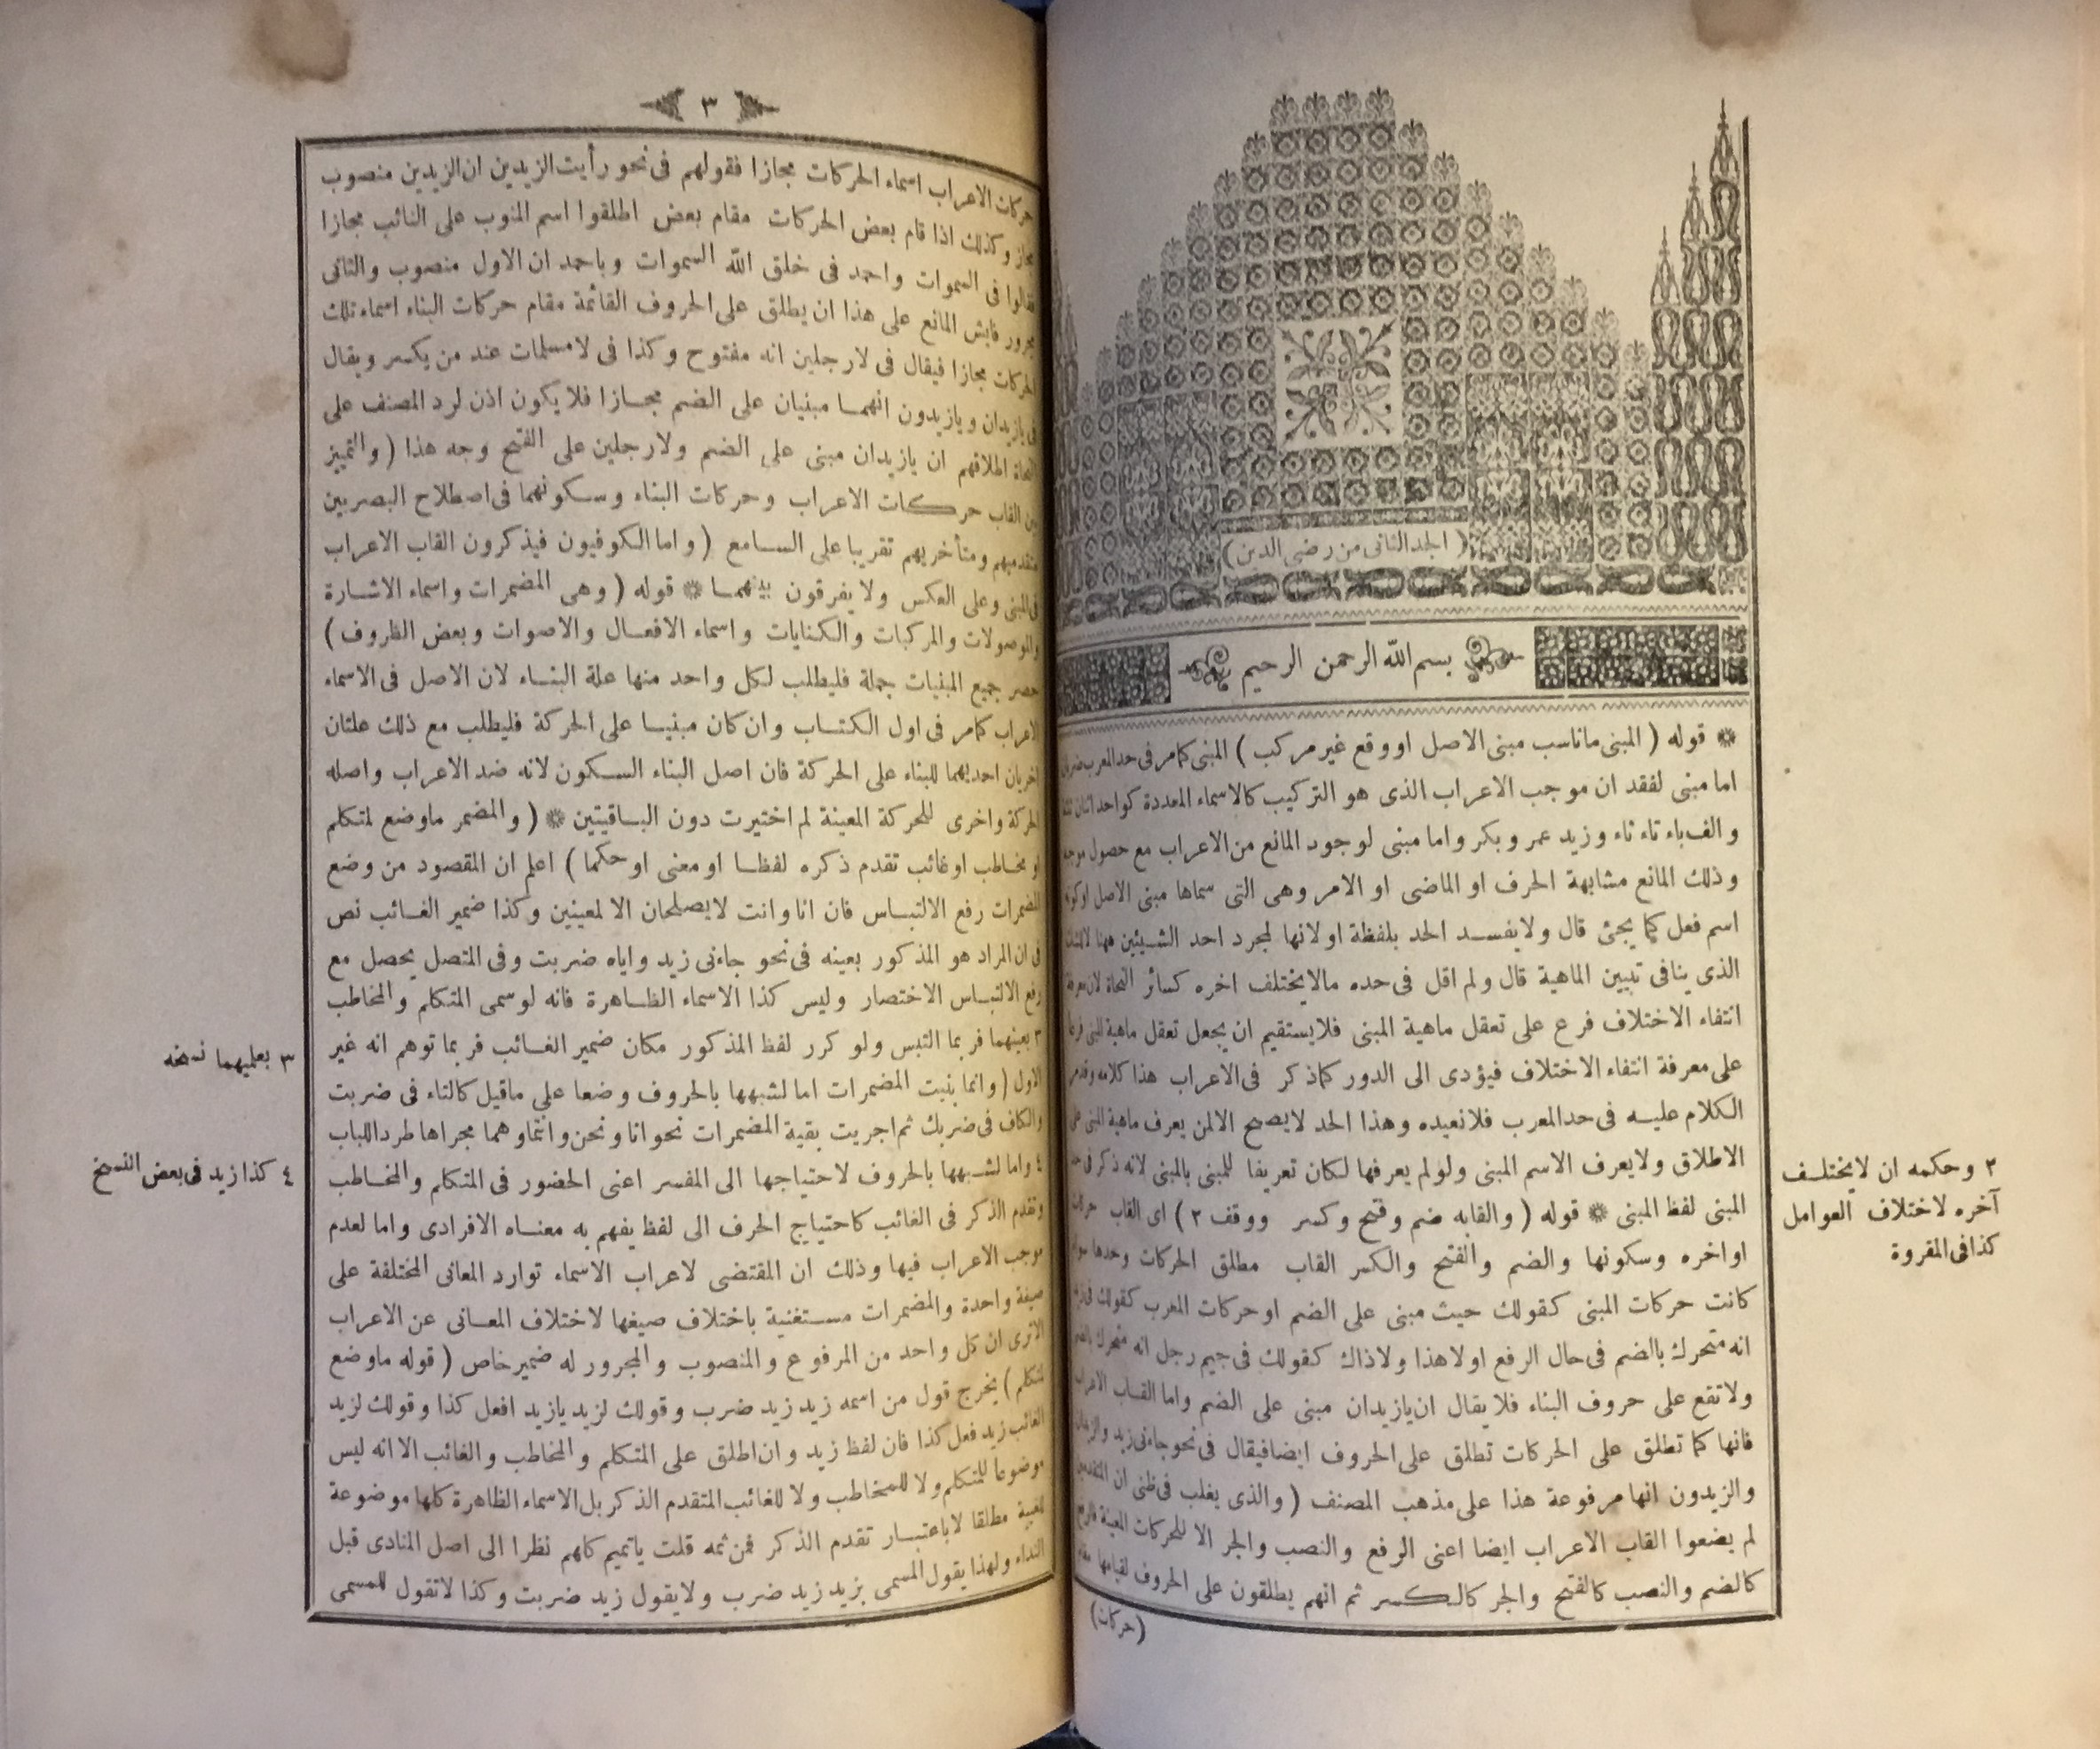 ( الجلد الثانى من رضى الدين )
بسم الله الرحمن الرحيم
* قوله ( المبنى ماناسب مبنى الاصل او وقع غير مركب ) المبنى كمامر فى حد المعرب ضربان
اما مبنى لفقد ان موجب الاعراب الذى هو التركيب كالاسماء المعددة كواحد اثنان
والف باء تاء ثاء وزيد عمر وبكر واما مبنى لوجود المانع من الاعراب مع حصول موجبه
وذلك المانع مشابهة الحرف او الماضى او الامر وهى التى سماها مبنى الاصل او كونه
اسم فعل كما يجئ قال ولايفسد الحد بلفظة او لانها لمجرد احد الشيئين ههنا لا للشك
الذى ينافى تبيين الماهية قال ولم اقل فى حده مالا يختلف اخره كسائر النحاة لان معرفة
انتفاء الاختلاف فرع على تعقل ماهية المبنى فلايستقيم ان يجعل تعقل ماهية المبنى فرعا
على معرفة انتفاء الاختلاف فيؤدى الى الدور كماذكر فى الاعراب هذا كلامه وقد مر
الكلام عليه فى حد المعرب فلا نعيده وهذا الحد لايصح الالمن يعرف ماهية المبنى على
الاطلاق ولايعرف الاسم المبنى ولولم يعرفها لكان تعريفا للمبنى بالمبنى لانه ذكر فى حد
المبنى لفظ المبنى * قوله ( والقابه ضم وفتح وكسر ووقف ٢ ) اى القاب حركات
اواخره وسكونها والضم والفتح والكسر القاب مطلق الحركات وحدها سواء
كانت حركات المبنى كقولك حيث مبنى على الضم او حركات المعرب كقولك
انه متحرك بالضم فى حال الرفع اولا هذا ولاذاك كقولك فى جيم رجل انه متحرك بالضم
ولاتقع على حروف البناء فلا يقال ان يازيدان مبنى على الضم واما القاب الاعراب
فانها كما تطلق على الحركات تطلق على الحروف ايضا فيقال فى نحو جاءنى زيد والزيدان
والزيدون انها مرفوعة هذا على مذهب المصنف ( والذى يغلب فى ظنى ان المتقدمين
لم يضعوا القاب الاعراب ايضا اعنى الرفع والنصب والجر الا للحركات المعينة فالرفع
كالضم والنصب كالفتح والجر كالكسر ثم انهم يطلقون على الحروف لقيامها مقام
(حركات)
٢ وحكمه ان لا يختلف
آخره لاختلاف العوامل
كذا فى المقروة
٣
حركات الاعراب اسماء الحركات مجازا فقولهم فى نحو رأيت الزيدين ان الزيدين منصوب
مجاز وكذلك اذا قام بعض الحركات مقام بعض اطلقوا اسم المنوب على النائب مجازا
فقالوا فى السموات واحمد فى خلق الله السموات وباحمد ان الاول منصوب والثانى
مجرور فايش المانع على هذا ان يطلق على الحروف القائمة مقام حركات البناء اسماء تلك
الحركات مجازا فيقال فى لارجلين انه مفتوح وكذا فى لامسلمات عند من يكسر ويقال
فى يازيدان ويازيدون انهما مبنيان على الضم مجازا فلا يكون اذن لرد المصنف على
النحاة اطلاقهم ان يازيدان مبنى على الضم ولارجلين على الفتح وجه هذا ( والتمييز
بين القاب حركات الاعراب وحركات البناء وسكونهما فى اصطلاح البصريين
متقدميهم ومتأخريهم تقريبا على السامع ( واما الكوفيون فيذكرون القاب الاعراب
فى المبنى وعلى العكس ولا يفرقون بينهما * قوله ( وهى المضمرات واسماء الاشارة
والموصولات والمركبات والكنايات واسماء الافعال والاصوات وبعض الظروف )
حصر جميع المبنيات جملة فليطلب لكل واحد منها علة البناء لان الاصل فى الاسماء
الاعراب كمامر فى اول الكتاب وان كان مبنيا على الحركة فليطلب مع ذلك علتان
اخريان احديهما للبناء على الحركة فان اصل البناء السكون لانه ضد الاعراب واصله
الحركة واخرى للحركة المعينة لم اختيرت دون الباقيتين * ( والمضمر ماوضع لمتكلم
او مخاطب او غائب تقدم ذكره لفظا او معنى او حكما ) اعلم ان المقصود من وضع
المضمرات رفع الالتباس فان انا وانت لايصلحان الا لمعينين وكذا ضمير الغائب نص
فى ان المراد هو المذكور بعينه فى نحو جاءنى زيد واياه ضربت وفى المتصل يحصل مع
رفع الالتباس الاختصار وليس كذا الاسماء الظاهرة فانه لوسمى المتكلم والمخاطب
٣ بعينهما فربما التبس ولو كرر لفظ المذكور مكان ضمير الغائب فربما توهم انه غير
الاول ( وانما بنيت المضمرات اما لشبهها بالحروف وضعا على ماقيل كالتاء فى ضربت
والكاف فى ضربك ثم اجريت بقية المضمرات نحوانا ونحن وانتما وهما مجراها طردا للباب
٤ واما لشبهها بالحروف لاحتياجها الى المفسر اعنى الحضور فى المتكلم والمخاطب
وتقدم الذكر فى الغائب كاحتياج الحرف الى لفظ يفهم به معناه الافرادى واما لعدم
موجب الاعراب فيها وذلك ان المقتضى لاعراب الاسماء توارد المعانى المختلفة على
صيغة واحدة والمضمرات مستغنية باختلاف صيغها لاختلاف المعانى عن الاعراب
الاترى ان كل واحد من المرفوع والمنصوب والمجرور له ضمير خاص ( قوله ماوضع
لمتكلم ) يخرج قول من اسمه زيد زيد ضرب وقولك لزيد يازيد افعل كذا وقولك لزيد
الغائب زيد فعل كذا فان لفظ زيد وان اطلق على المتكلم والمخاطب والغائب الا انه ليس
موضوعا للمتكلم ولا للمخاطب ولا للغائب المتقدم الذكر بل الاسماء الظاهرة كلها موضوعة
للغيبة مطلقا لاباعتبار تقدم الذكر فمن ثمه قلت ياتميم كلهم نظرا الى اصل المنادى قبل
النداء ولهذا يقول المسمى بزيد زيد ضرب ولايقول زيد ضربت وكذا لاتقول للمسمى
٣ بعلميهما نسخه
٤ كذا زيد فى بعض النسخ